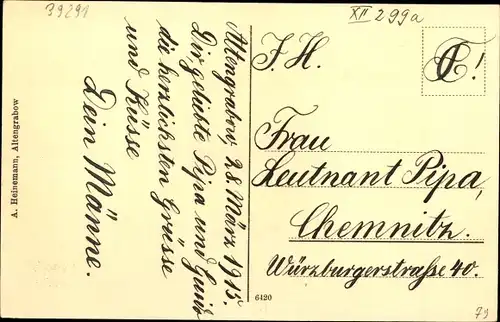 39291
XII 299a
Altengrabow, 28. März 1915.
Dir, geliebte Pipa und Guido
die herzlichsten Grüsse
und Küsse
Dein Männe.
A. Heinemann, Altengrabow
F. H.
Frau
Leutnant Pipa,
Chemnitz.
Würzburgerstraße 40.
6420
79